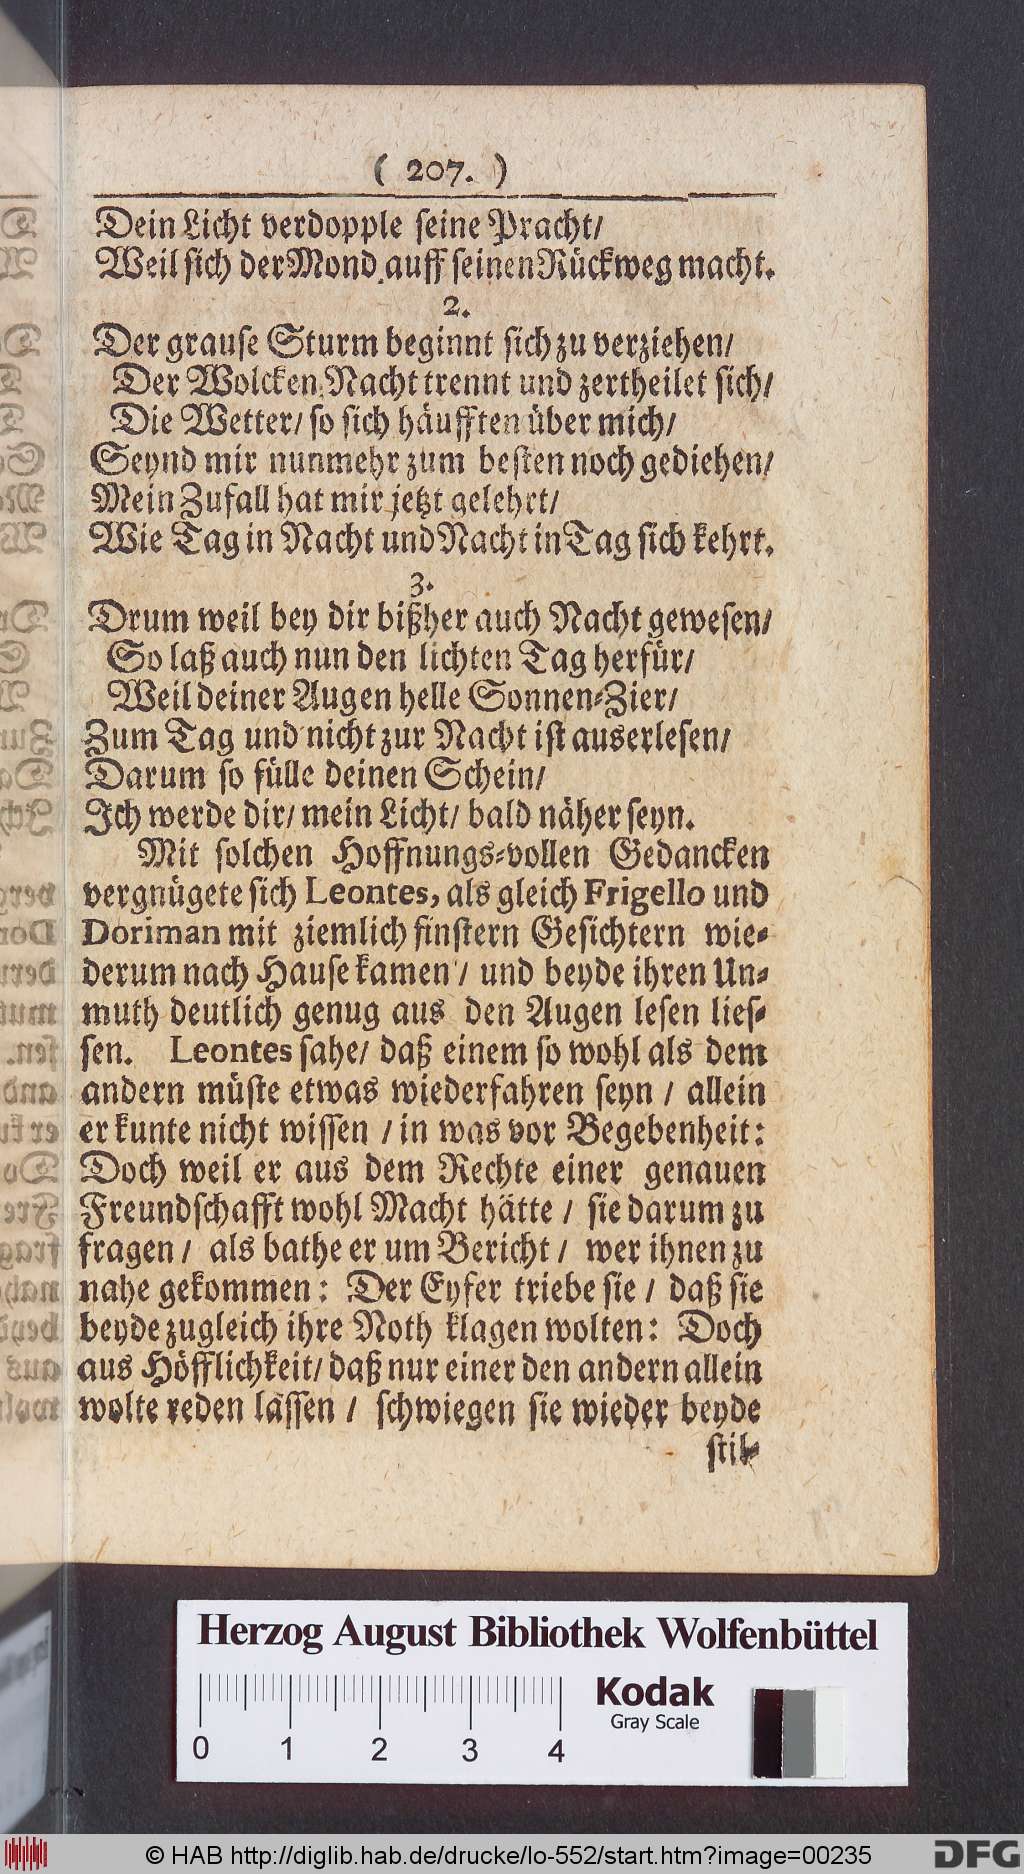 ( 207. )
Dein Licht verdopple seine Pracht/
Weil sich der Mond auff seinen Rückweg macht.
2.
Der grause Sturm beginnt sich zu verziehen/
Der Wolcken Nacht trennt und zertheilet sich/
Die Wetter/ so sich häufften über mich/
Seynd mir nunmehr zum besten noch gediehen/
Mein Zufall hat mir jetzt gelehrt/
Wie Tag in Nacht und Nacht in Tag sich kehrt.
3.
Drum weil bey dir bißher auch Nacht gewesen/
So laß auch nun den lichten Tag herfür/
Weil deiner Augen helle Sonnen-Zier/
Zum Tag und nicht zur Nacht ist auserlesen/
Darum so fülle deinen Schein/
Ich werde dir/ mein Licht/ bald näher seyn.
Mit solchen Hoffnungs-vollen Gedancken
vergnügete sich Leontes, als gleich Frigello und
Doriman mit ziemlich finstern Gesichtern wie-
derum nach Hause kamen / und beyde ihren Un-
muth deutlich genug aus den Augen lesen lies-
sen. Leontes sahe/ daß einem so wohl als dem
andern müste etwas wiederfahren seyn / allein
er kunte nicht wissen / in was vor Begebenheit:
Doch weil er aus dem Rechte einer genauen
Freundschafft wohl Macht hätte / sie darum zu
fragen / als bathe er um Bericht / wer ihnen zu
nahe gekommen: Der Eyfer triebe sie / daß sie
beyde zugleich ihre Noth klagen wolten: Doch
aus Höfflichkeit/ daß nur einer den andern allein
wolte reden lassen / schwiegen sie wieder beyde
stil-
Herzog August Bibliothek Wolfenbüttel
Kodak
Gray Scale
0 1 2 3 4
© HAB http://diglib.hab.de/drucke/lo-552/start.htm?image=00235
DFG